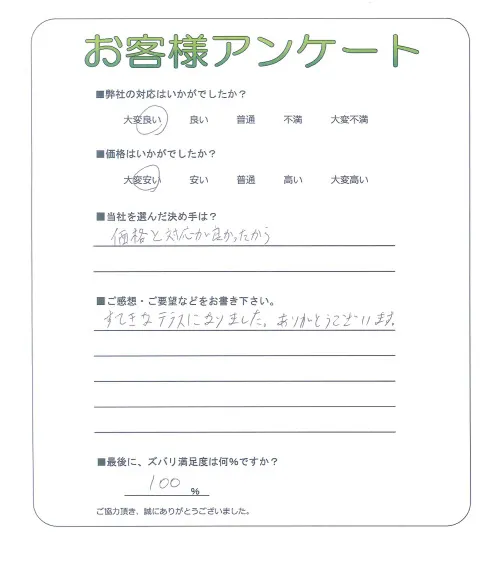 お客様アンケート
■弊社の対応はいかがでしたか？
大変良い 良い 普通 不満 大変不満
■価格はいかがでしたか？
大変安い 安い 普通 高い 大変高い
■当社を選んだ決め手は？
価格と対応が良かったから
■ご感想・ご要望などをお書き下さい。
すてきなテラスになりました。ありがとうございます。
■最後に、ズバリ満足度は何%ですか？
100 %
ご協力頂き、誠にありがとうございました。